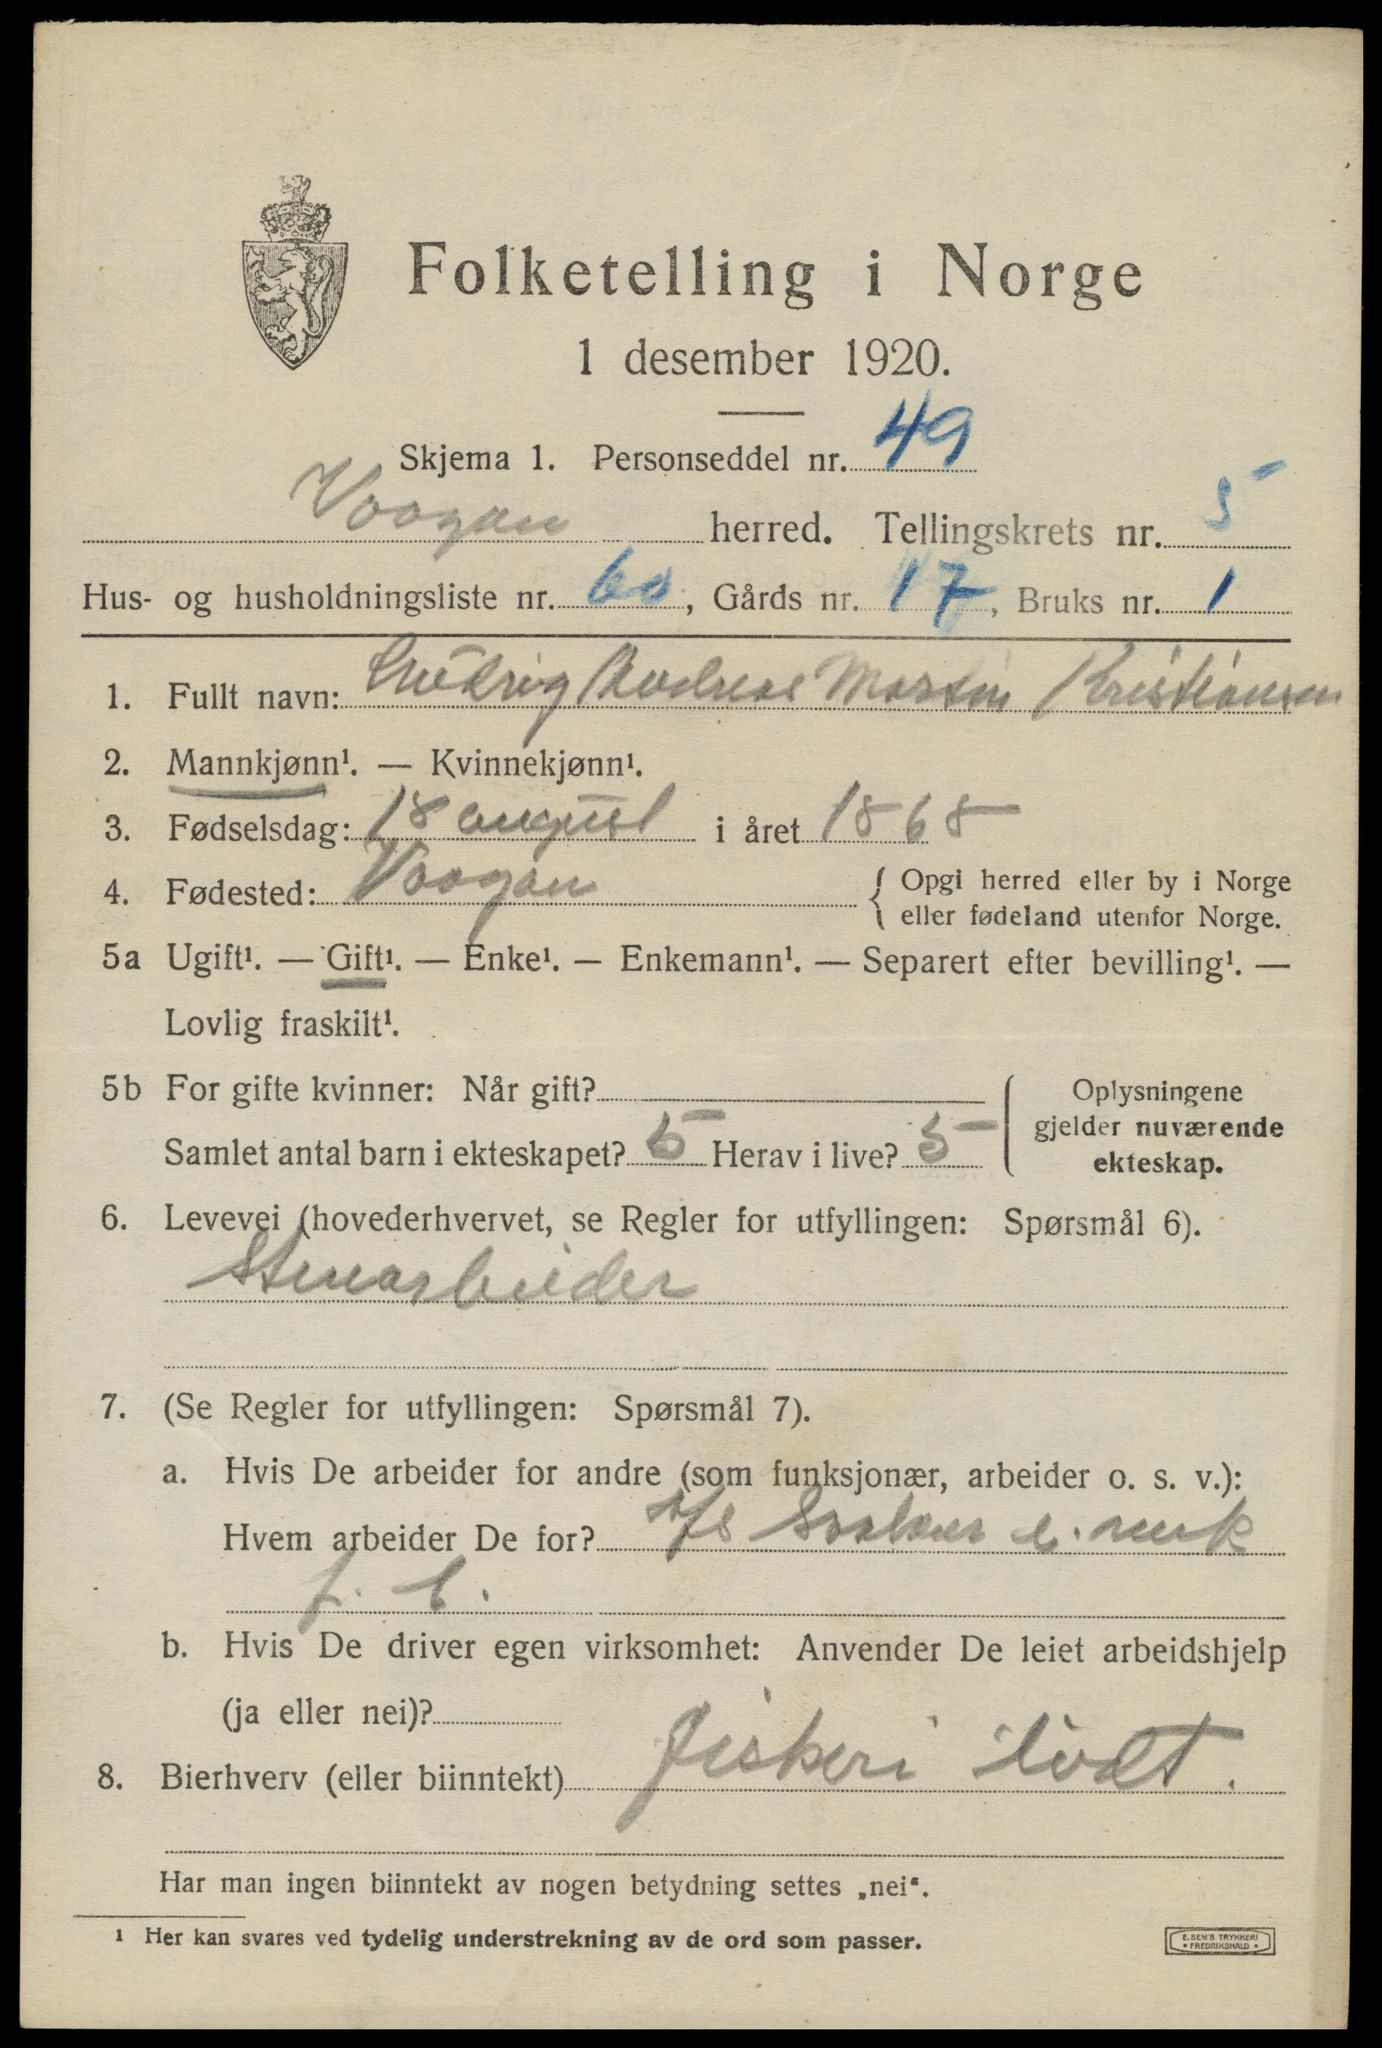 Folketelling i Norge
1 desember 1920.
Skjema 1. Personseddel nr. 49
Vaagan herred. Tellingskrets nr. 5
Hus- og husholdningsliste nr. 60, Gårds nr. 17, Bruks nr. 1
1. Fullt navn: Ludvig Andreas Martin Kristiansen
2. Mannkjønn¹. — Kvinnekjønn¹.
3. Fødselsdag: 18 august i året 1868
4. Fødested: Vaagan { Opgi herred eller by i Norge
eller fødeland utenfor Norge.
5a Ugift¹. — Gift¹. — Enke¹. — Enkemann¹. — Separert efter bevilling¹. —
Lovlig fraskilt¹.
5b For gifte kvinner: Når gift?
Samlet antal barn i ekteskapet? 5 Herav i live? 5
Oplysningene
gjelder nuværende
ekteskap.
6. Levevei (hovederhvervet, se Regler for utfyllingen: Spørsmål 6).
Stenarbeider
7. (Se Regler for utfyllingen: Spørsmål 7).
a. Hvis De arbeider for andre (som funksjonær, arbeider o. s. v.):
Hvem arbeider De for? A/S
b. Hvis De driver egen virksomhet: Anvender De leiet arbeidshjelp
(ja eller nei)?
8. Bierhverv (eller biinntekt) Fiskeri
Har man ingen biinntekt av nogen betydning settes „nei“.
1 Her kan svares ved tydelig understrekning av de ord som passer.
E. SEM'S TRYKKERI
• FREDRIKSHALD •